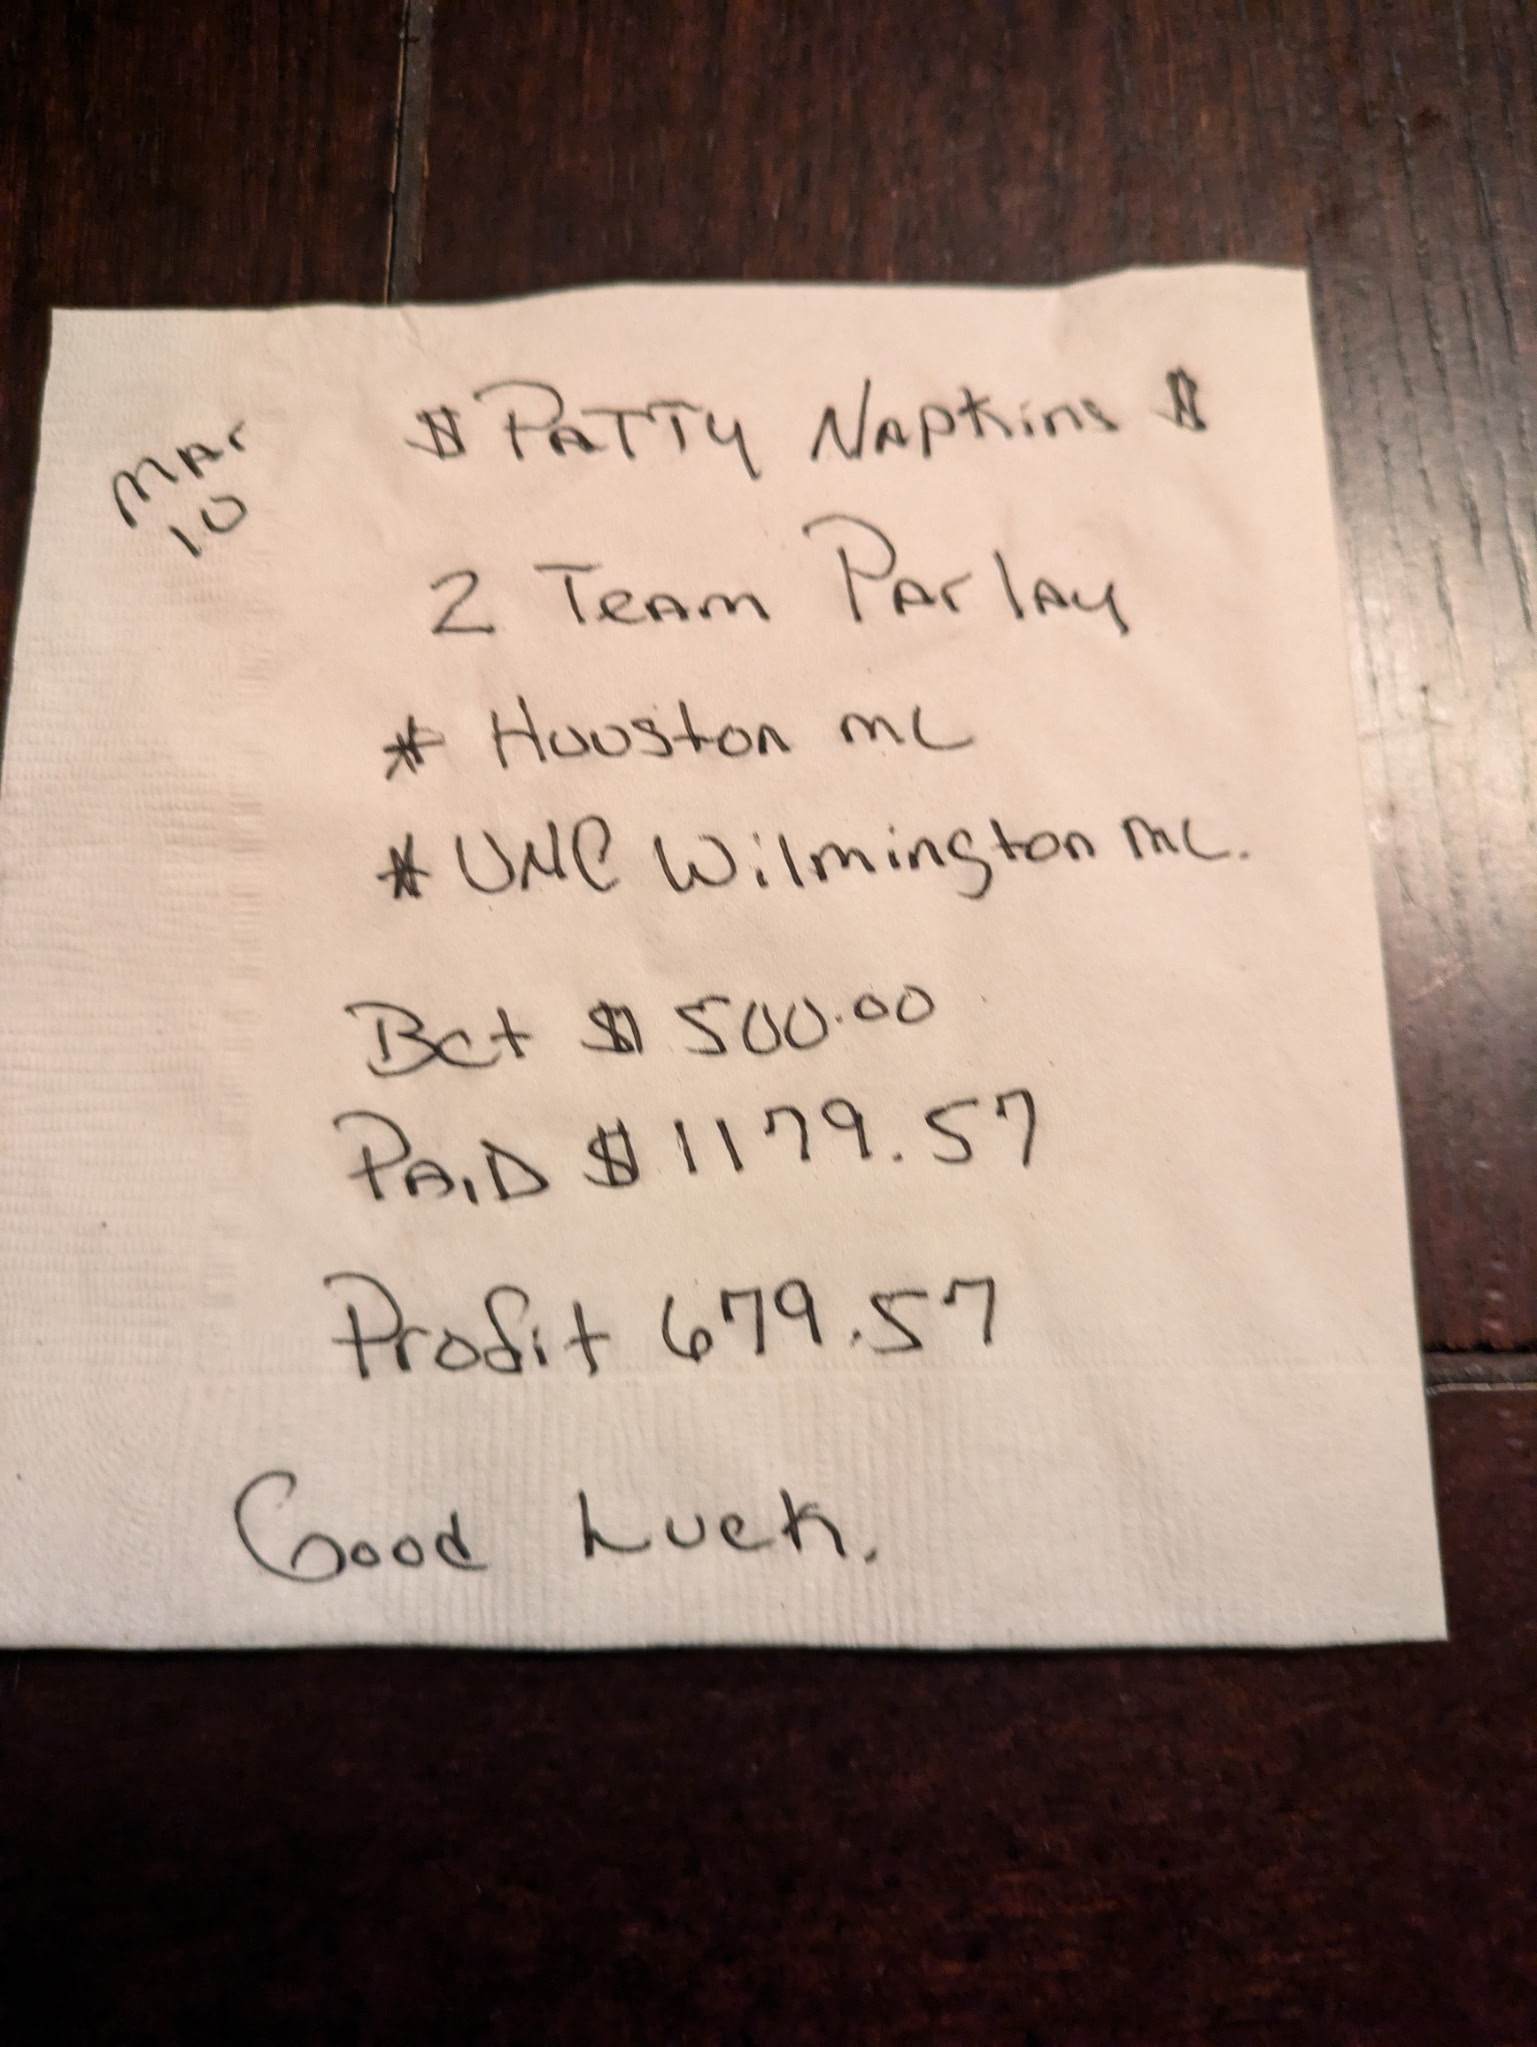 Mar
10
$ Patty Napkins $
2 Team Parlay
* Huuston ML
* UNC Wilmington ML.
Bet $ 500.00
Paid $ 1179.57
Profit 679.57
Good Luck.